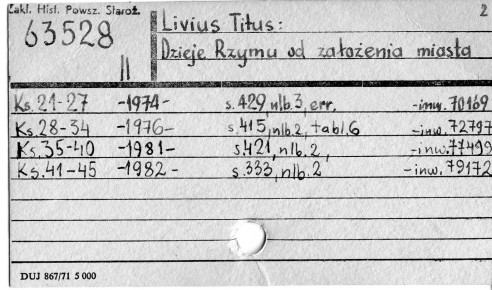 Zakł. Hist. Powsz. Staroż.
63528
II
2
Livius Titus:
Dzieje Rzymu od założenia miasta
Ks. 21-27 -1974- s. 429, nlb. 3, err. -inw. 70169
Ks. 28-34 -1976- s. 415, nlb. 2, tabl. 6 -inw. 72797
Ks. 35-40 -1981- s. 421, nlb. 2, -inw. 77499
Ks. 41-45 -1982- s. 333, nlb. 2 -inw. 79172
DUJ 867/71 5 000